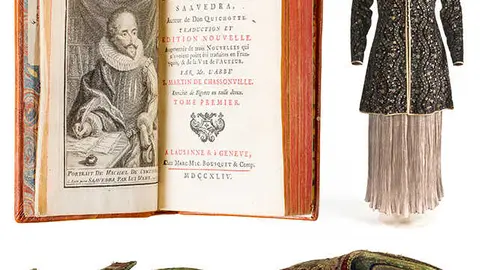 SAAVEDRA,
Auteur de Don QUICHOTTE.
TRADUCTION ET
EDITION NOUVELLE,
Augmentée de trois NOUVELLES qui
n'avoient point été traduites en Fran-
çois, & de la VIE de l'AUTEUR.
PAR Mr. L'ABBÉ
S. MARTIN DE CHASSONVILLE.
Enrichie de Figures en taille douce.
TOME PREMIER.
A LAUSANNE & à GENEVE,
Chez MARC MIC. BOUSQUET & Comp.
MDCCXLIV.
PORTRAIT DE MICHEL DE
SAAVEDRA PAR LUI MEME